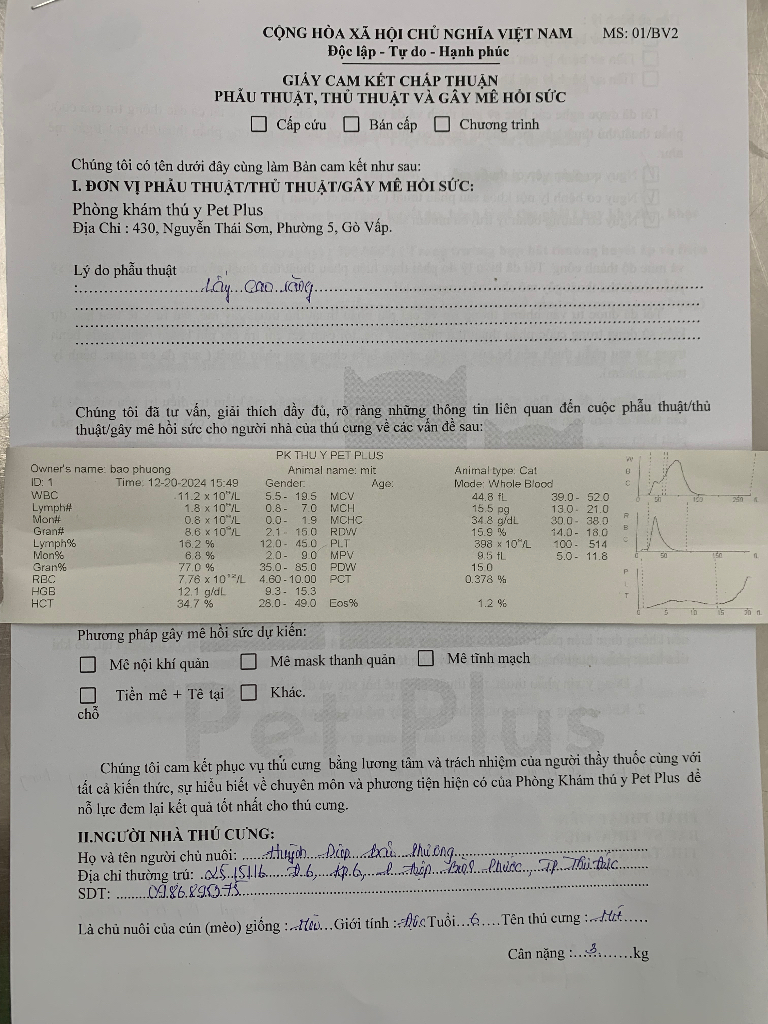 CỘNG HÒA XÃ HỘI CHỦ NGHĨA VIỆT NAM MS: 01/BV2
Độc lập - Tự do - Hạnh phúc
GIẤY CAM KẾT CHẤP THUẬN
PHẪU THUẬT, THỦ THUẬT VÀ GÂY MÊ HỒI SỨC
Cấp cứu Bán cấp Chương trình
Chúng tôi có tên dưới đây cùng làm Bản cam kết như sau:
I. ĐƠN VỊ PHẪU THUẬT/THỦ THUẬT/GÂY MÊ HỒI SỨC:
Phòng khám thú y Pet Plus
Địa Chỉ : 430, Nguyễn Thái Sơn, Phường 5, Gò Vấp.
Lý do phẫu thuật
: Lấy cao răng
Chúng tôi đã tư vấn, giải thích đầy đủ, rõ ràng những thông tin liên quan đến cuộc phẫu thuật/thủ
thuật/gây mê hồi sức cho người nhà của thú cưng về các vấn đề sau:
PK THU Y PET PLUS
Owner's name: bao phuong Animal name: mit Animal type: Cat
ID: 1 Time: 12-20-2024 15:49 Gender: Age: Mode: Whole Blood
WBC 11.2 x 10^9/L 5.5- 19.5 MCV 44.8 fL 39.0- 52.0
Lymph# 1.8 x 10^9/L 0.8- 7.0 MCH 15.5 pg 13.0- 21.0
Mon# 0.8 x 10^9/L 0.0- 1.9 MCHC 34.8 g/dL 30.0- 38.0
Gran# 8.6 x 10^9/L 2.1- 15.0 RDW 15.9 % 14.0- 18.0
Lymph% 16.2 % 12.0- 45.0 PLT 398 x 10^9/L 100- 514
Mon% 6.8 % 2.0- 9.0 MPV 9.5 fL 5.0- 11.8
Gran% 77.0 % 35.0- 85.0 PDW 15.0
RBC 7.76 x 10^12/L 4.60-10.00 PCT 0.378 %
HGB 12.1 g/dL 9.3- 15.3
HCT 34.7 % 28.0- 49.0 Eos% 1.2 %
WBC
RBC
PLT
Phương pháp gây mê hồi sức dự kiến:
Mê nội khí quản Mê mask thanh quản Mê tĩnh mạch
Tiền mê + Tê tại Khác.
chỗ
Pet Plus
Chúng tôi cam kết phục vụ thú cưng bằng lương tâm và trách nhiệm của người thầy thuốc cùng với
tất cả kiến thức, sự hiểu biết về chuyên môn và phương tiện hiện có của Phòng Khám thú y Pet Plus để
nỗ lực đem lại kết quả tốt nhất cho thú cưng.
II.NGƯỜI NHÀ THÚ CƯNG:
Họ và tên người chủ nuôi: Huỳnh Diệp Bảo Phương
Địa chỉ thường trú: Đ.6, KP.6, P. Hiệp Bình Phước, TP. Thủ Đức
SDT:
Là chủ nuôi của cún (mèo) giống : Mèo Giới tính : Đực Tuổi 6 Tên thú cưng : Mít
Cân nặng : 3 kg